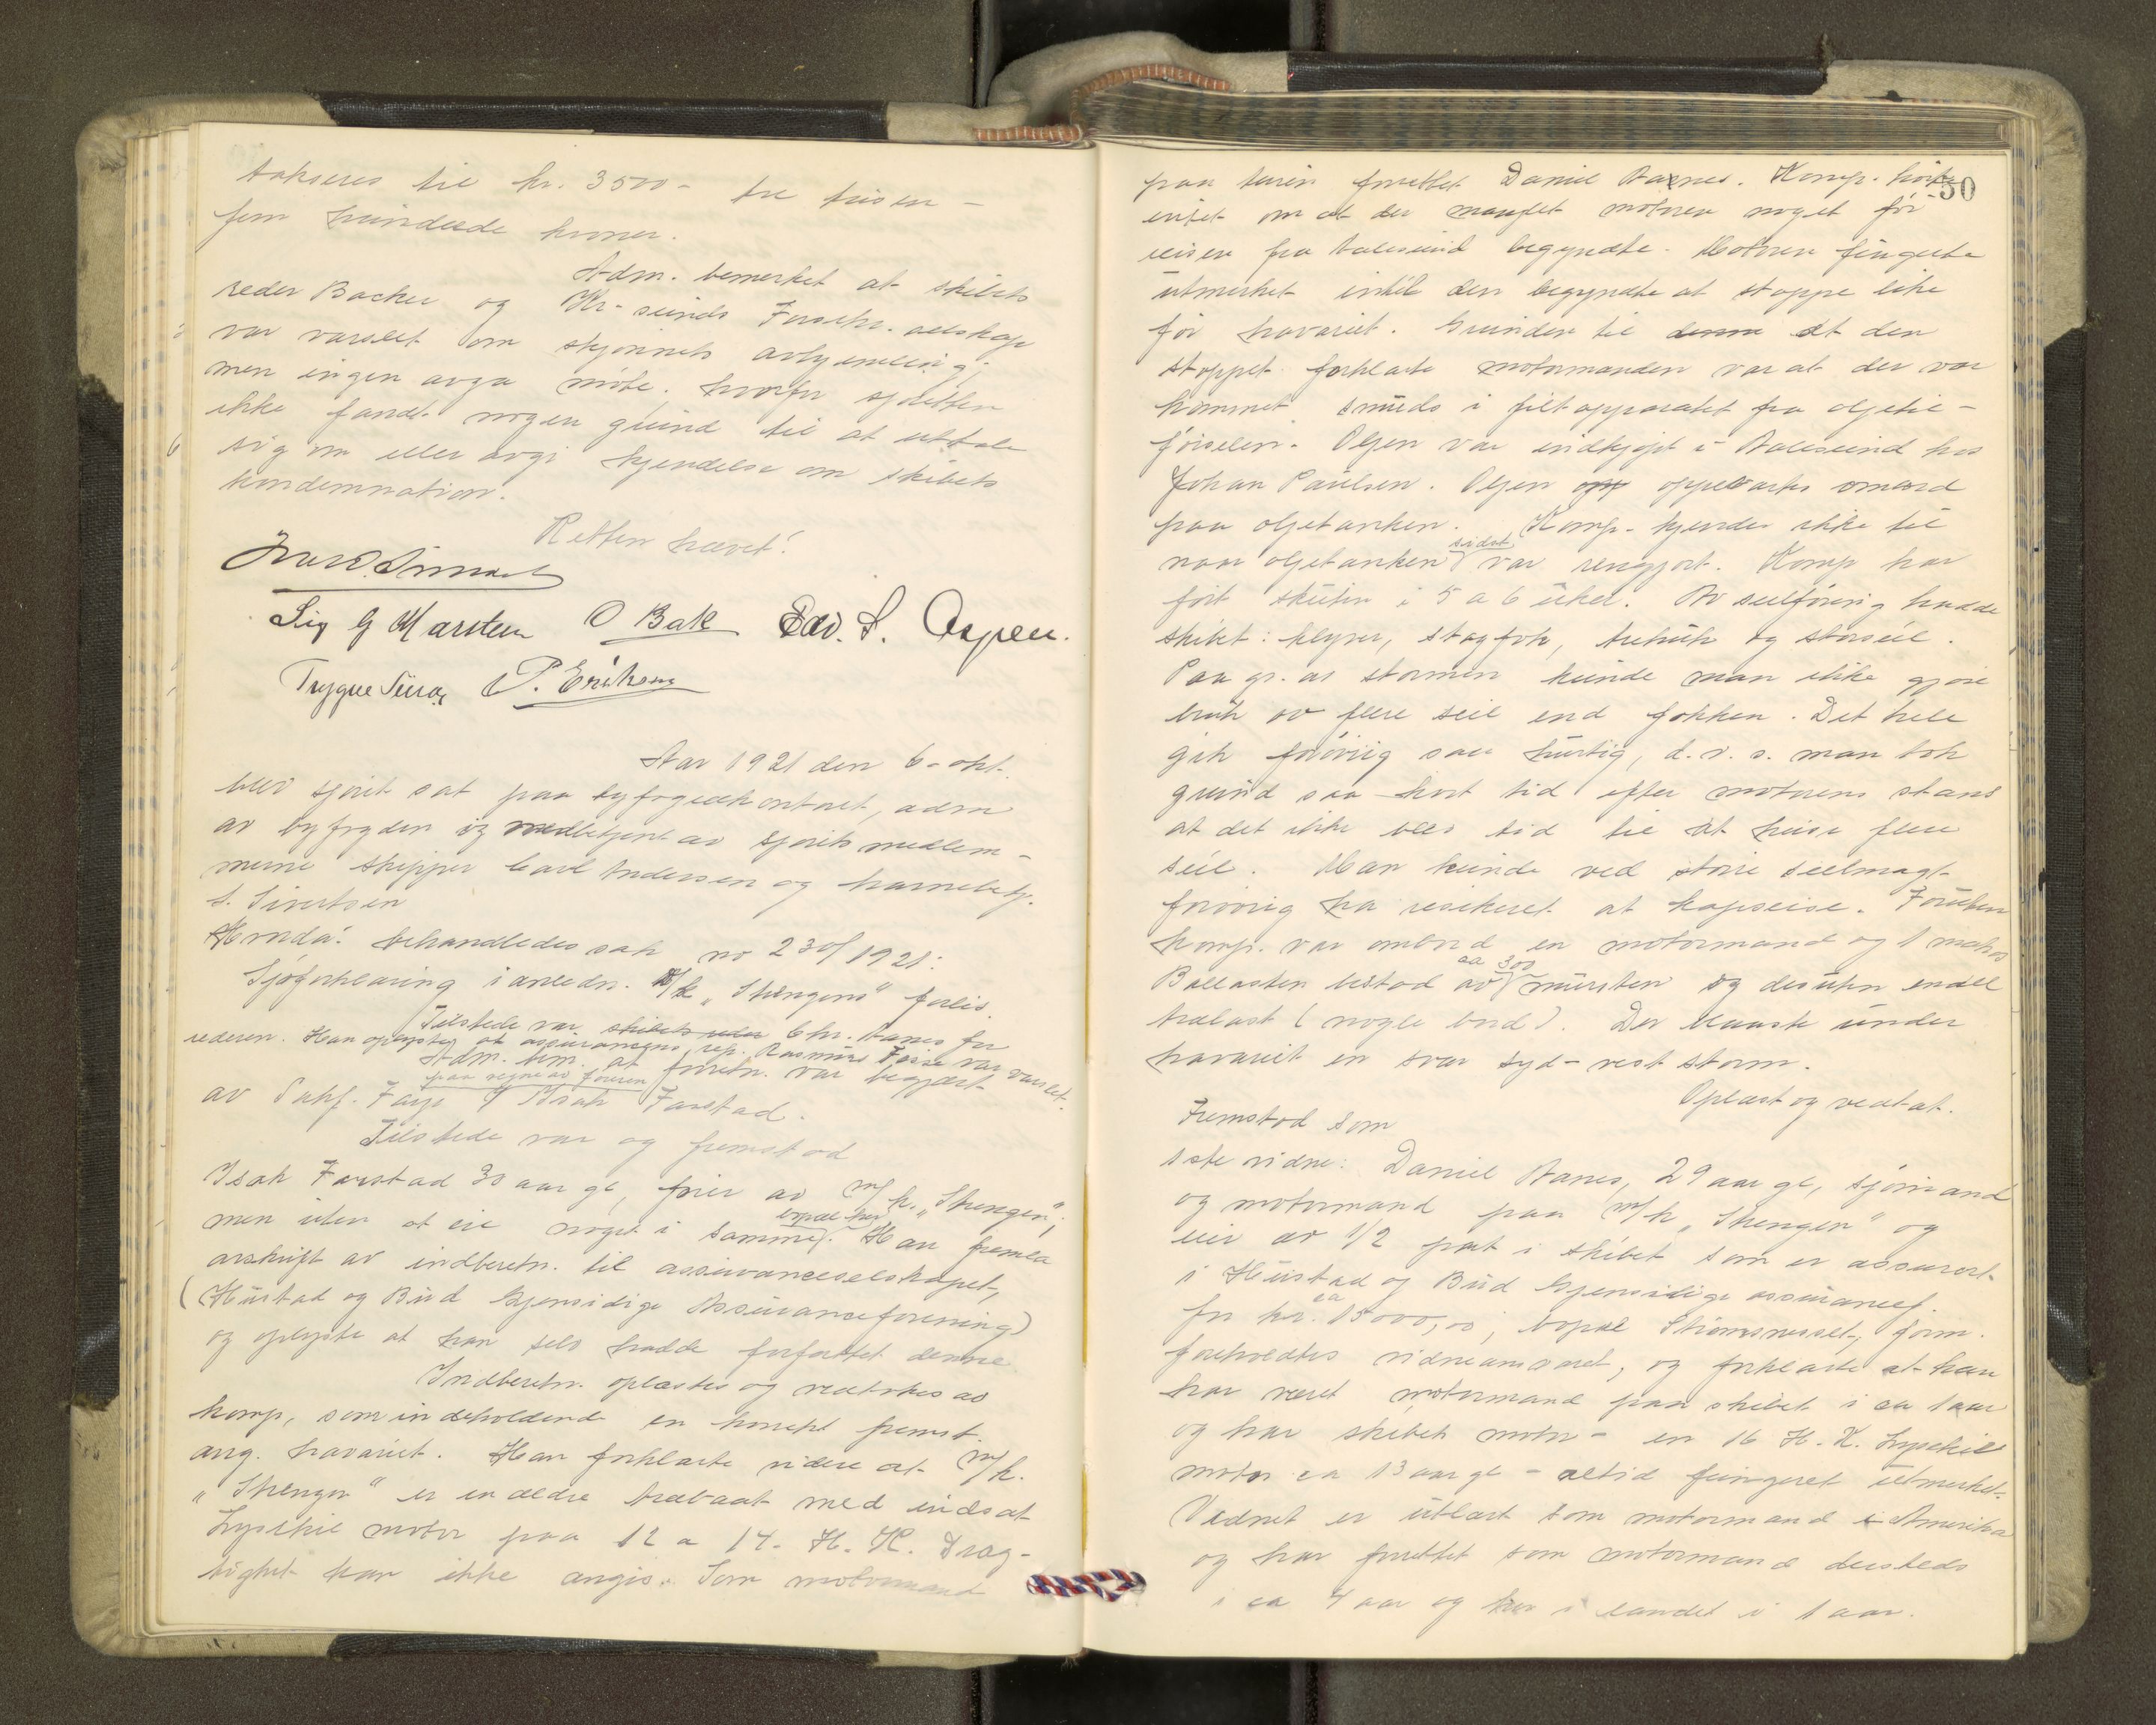 takseres til kr. 3500 - tre tusen -
fem hundrede kroner.
Adm. bemerket at skibets
reder Backer og Kr-sunds Forsikr. selskap
var varslet om skjønnets avhjemling;
men ingen avga møte. hvorfor sjøretten
ikke fandt nogen grund til at uttale
sig om eller avgi kjendelse om skibets
kondemnation.
Retten hævet!
Sig G Marsteen O Bak Edv. S. Aspen.
Trygve P. Eriksen
Aar 1921 den 6- okt.
blev sjøret sat paa byfogedkontoret, adm
av byfogden og medbetjent av sjørets medlem-
merne skipper Carl Andersen og havnebetj.
S. Sivertsen
Hvorda: behandledes sak no 230/1921:
Sjøforklaring i anledn. m/k „Stængens" forlis.
Tilstede var skibets reder Chr. Aanes for
rederen. Han oplyste at assuransens rep. Rasmus var varslet.
Adm. bem. at forretn. var begjært
paa vegne av føreren
av Sakf. Farstad.
Tilstede var og fremstod
Isak Farstad 30 aar gl, fører av m/k. „Stængen",
men uten at eie noget i samme, bopæl her. Han fremla
avskrift av indberetn. til assuranceselskapet,
(Hustad og Bud Gjensidige Assuranceforening)
og oplyste at han selv hadde forfattet denne
Indberetn. oplæstes og vedtokes av
komp, som indeholdende en korrekt fremst.
ang. havariet. Han forklarte videre at m/k.
„Stængen" er en ældre træbaat med indsat
Lysekil motor paa 12 a 14. H. K. Dræg-
tighet kan ikke angis. Som motormand
50
paa turen forrettet Daniel Aanes. Komp. hørte
intet om at der manglet motoren noget før
reisen fra Aalesund begyndte. Motoren fungerte
utmerket intil den begyndte at stoppe like
før havariet. Grunden til denne at den
stoppet forklarte motormanden var at der var
kommet smuds i filtapparatet fra oljetil-
førselen. Oljen var indkjøpt i Aalesund hos
Johan Paulsen. Oljen opp oppbevartes ombord
paa oljetanken. Komp. kjender ikke til
naar oljetanken sidst var rengjort. Komp har
ført skuten i 5 a 6 uker. Av seilføring hadde
skibet: klyver, stagfok, trekuk og storseil.
Paa gr. av stormen kunde man ikke gjøre
bruk av flere seil end fokken. Det hele
gik forøvrig saa hurtig, d. v. s. man tok
grund saa kort tid efter motorens stans
at det ikke blev tid til at heise flere
seil. Man kunde ved større seilmagt
forøvrig ha risikeret at kapseise. Foruten
komp. var ombord en motormand og 1 matros
Ballasten bestod av ca 300 mursten og desuten endel
trælast (nogle bord). Der blaaste under
havariet en svær syd-vest storm.
Oplæst og vedtat.
Fremstod som
1ste vidne: Daniel Aanes, 29 aar gl, sjømand
og motormand paa m/k „Stængen" og
eier av 1/2 part i skibet som er assurert
i Hustad og Bud Gjensidige assurancef.
for kr. ca 15000,00, bopæl Strømsnesset, form.
foreholdtes vidneansvaret, og forklarte at han
har været motormand paa skibet i ca 1 aar
og har skibets motor - en 16 H. K. Lysekil
motor ca 13 aar gl - altid fungeret utmerket.
Vidnet er utlært som motormand i Amerika
og har forrettet som motormand dersteds
i ca 4 aar og her i landet i 1 aar.